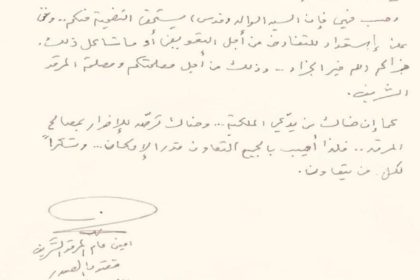 وحب فيّ فإن السيد الوالد (قدس) يستحق التضحية منكم.. ونحن
على إستعداد للتعاون من أجل التعويض أو ما شاكل ذلك.
جزاكم الله خير الجزاء... وذلك من أجل مصلحتكم ومصلحة المرقد
الشريف.
كما إن هناك من يدّعي الملكية... وهناك للإضرار بمصالح
المرقد.. فلذا أهيب بالجميع التعاون قدر الإمكان... وشكراً
لكل من يتعاون.
امين عام المرقد الشريف
مقتدى الصدر